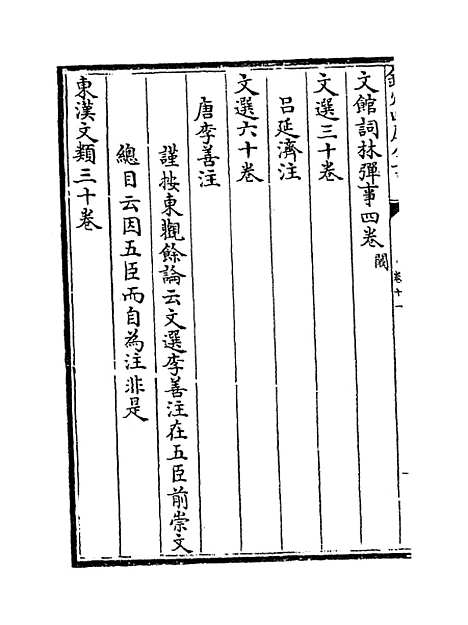 卷十一
文館詞林彈事四卷 闕
文選三十卷
吕延濟注
文選六十卷
唐李善注
謹按東觀餘論云文選李善注在五臣前崇文
總目云因五臣而自為注非是
東漢文類三十卷